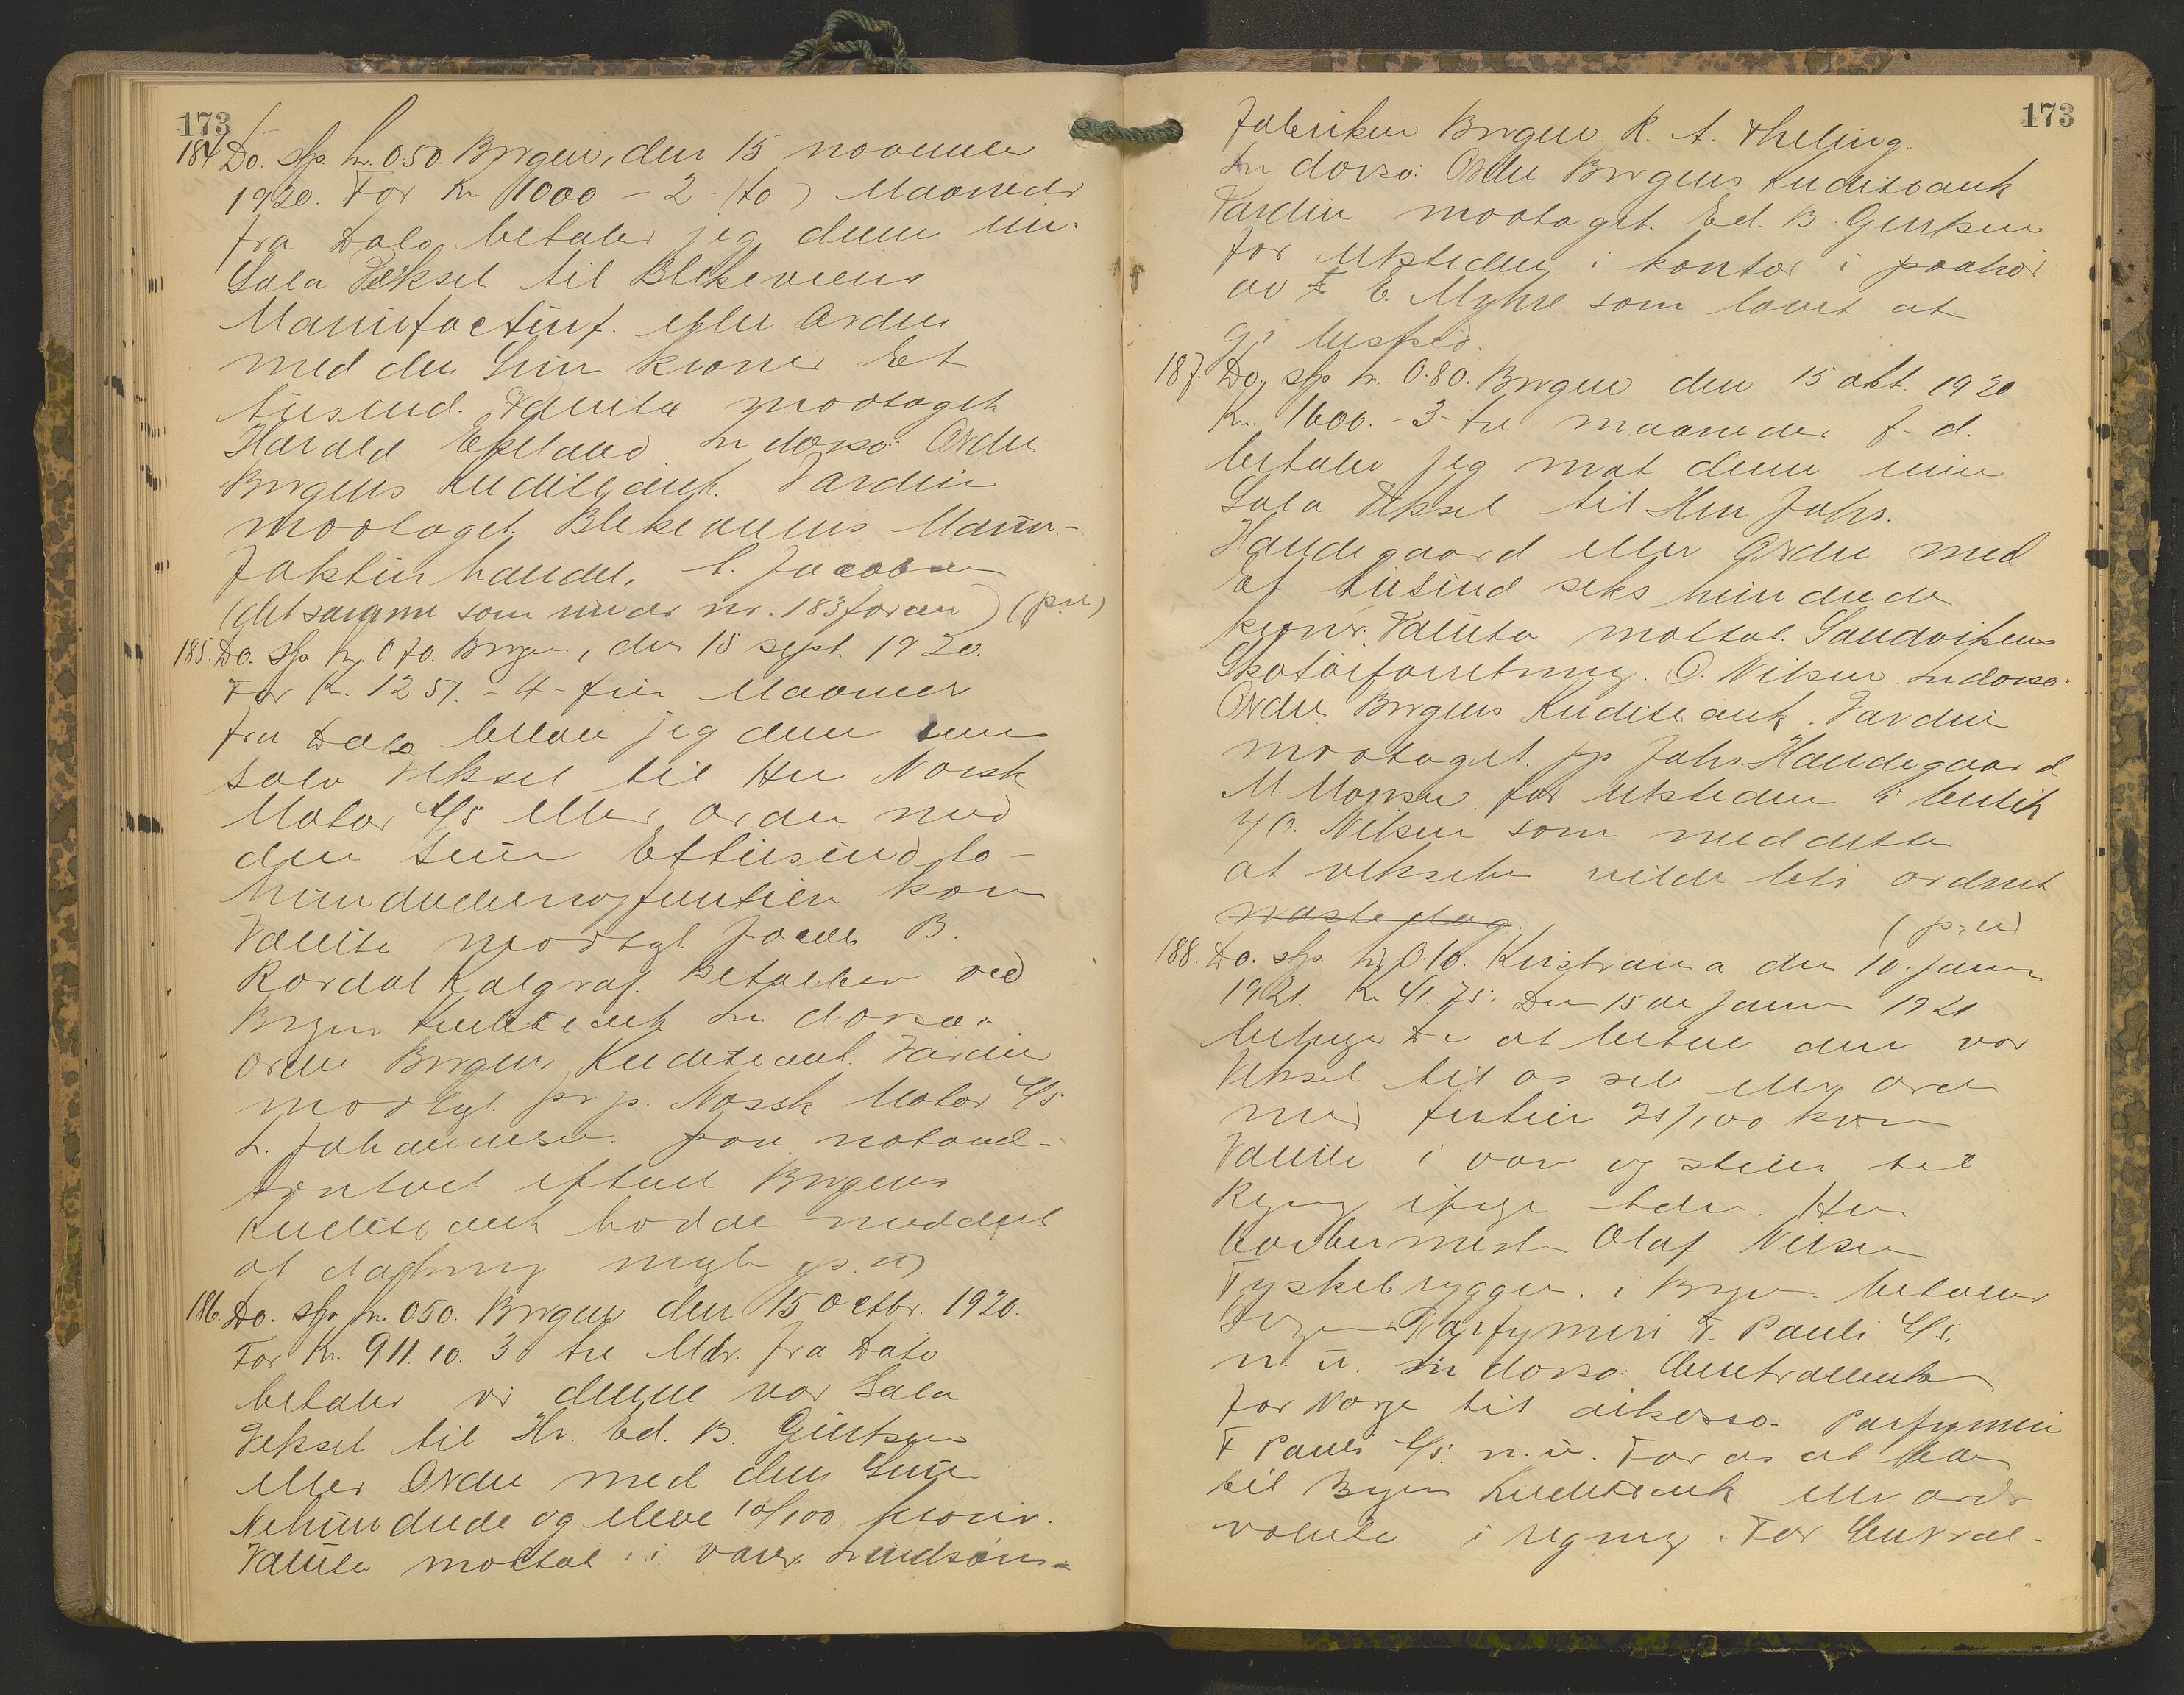 173
184. Do. stp. kr. 0.50. Bergen, den 15 november
1920. For Kr 1000.- 2 (to) Maaneder
fra Dato betaler jeg denne min
Sola Veksel til Blekeveiens
Manufacturf. eller Ordre
med den Sum kroner Et
tusind. Valuta modtaget
Harald Espeland In dorso: Ordre
Bergens Kreditbank. Værdien
modtaget Blekeveiens Manu-
fakturhandel, Jacobsen
(det samme som under nr. 183 foran) (p.u)
185. Do. stp. kr. 0.70. Bergen, den 15 sept. 1920.
For Kr. 1251.- 4- fire Maaneder
fra Dato betaler jeg denne min
sola Veksel til Herr Norsk
Motor A/S eller ordre med
den Sum Ettusindto-
hundrede kron
Valuta modtgt Jacob B.
Rørdal Kalgraf. Betalbar ved
Bergens Kreditbank In dorso:
ordre Bergens Kreditbank. Værdien
modtgt. pr p. Norsk Motor A/S
L. Johannesen. paa notarial-
kontoret eftersat Bergens
Kreditbank hadde meddelt
at dækning (p.u)
186. Do. stp. kr. 050. Bergen den 15 Octbr. 1920.
For Kr. 911.10. 3 tre Mdr. fra Dato
betaler vi denne vor Sola
Veksel til Hr. Ed. B. Giertsen
eller Ordre med den Sum
Nihundrede og elleve 10/100 kroner.
Valuta mottat i varer
173
Fabrikken Bergen. R. A. Theling.
In dorso: Ordre Bergens Kreditbank
Værdien modtaget. Ed. B. Giertsen
for utsteder i kontor i paahør
av E. Myhre som lovet at
gi besked.
187. Do. stp. kr. 0.80. Bergen den 15 okt. 1920
Kr. 1600.- 3- tre maaneder f. d.
betaler jeg mot denne min
Sola Veksel til Herr Johs.
Haudegaard eller Ordre med
Et tusind seks hundrede
kroner. Valuta mottat. Sandvikens
Skotøiforretning. O. Nilsen. In dorso:
Ordre Bergens Kreditbank. Værdien
modtaget. pp Johs. Haudegaard
M. Monsen. for utsteder i butik
O. Nilsen som meddelte
at vekselen vilde bli ordnet
næste dag. (p.u)
188. Do. stp. kr. 0.10. Kristiania den 10. januar
1921. Kr 41.75. Den 15de januar 1921
behager De at betale denne vor
Veksel til os selv eller ordre
med 75/100 kron
Valuta i varer og stilles til
Regning ifølge Herr
barbermester Olaf Nilsen
Tyskebryggen. i Bergen betaler
Parfymeri F. Pauli A/S.
n. u. In dorso: Centralbanken
for Norge til inkasso. Parfymeri
F Pauli A/S. n. u. For os at betale
til Bergens Kreditbank eller ordre
valuta i regning. For Central-